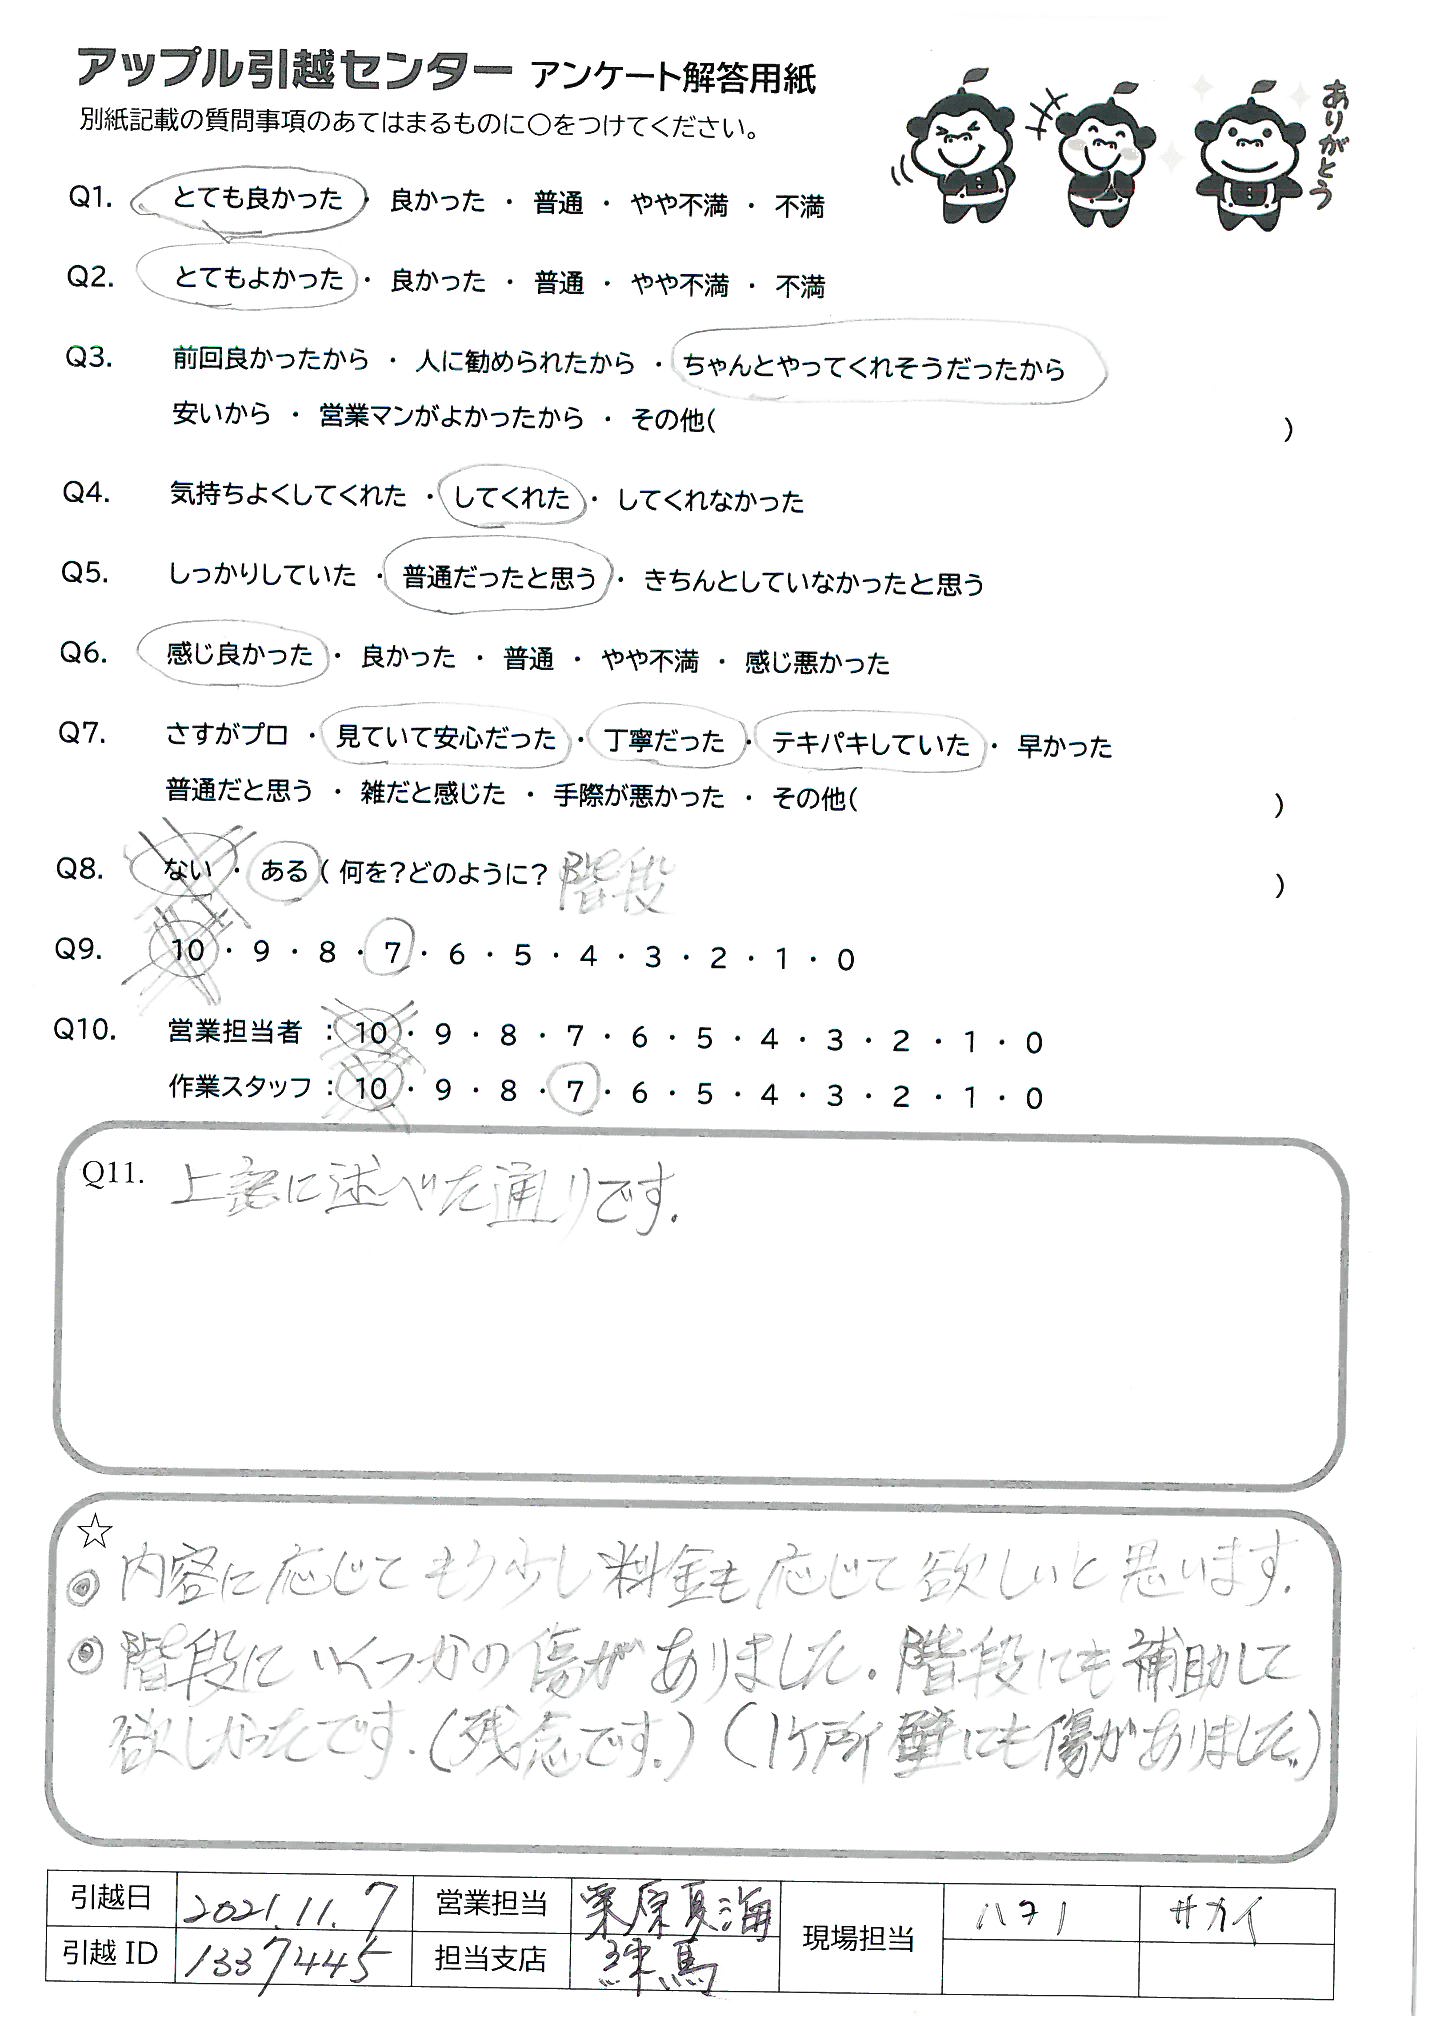 アップル引越センター アンケート解答用紙
別紙記載の質問事項のあてはまるものに○をつけてください。
ありがとう
Q1. とても良かった ・ 良かった ・ 普通 ・ やや不満 ・ 不満
Q2. とてもよかった ・ 良かった ・ 普通 ・ やや不満 ・ 不満
Q3. 前回良かったから ・ 人に勧められたから ・ ちゃんとやってくれそうだったから
安いから ・ 営業マンがよかったから ・ その他( )
Q4. 気持ちよくしてくれた ・ してくれた ・ してくれなかった
Q5. しっかりしていた ・ 普通だったと思う ・ きちんとしていなかったと思う
Q6. 感じ良かった ・ 良かった ・ 普通 ・ やや不満 ・ 感じ悪かった
Q7. さすがプロ ・ 見ていて安心だった ・ 丁寧だった ・ テキパキしていた ・ 早かった
普通だと思う ・ 雑だと感じた ・ 手際が悪かった ・ その他( )
Q8. ない ・ ある ( 何を?どのように? 階段 )
Q9. 10 ・ 9 ・ 8 ・ 7 ・ 6 ・ 5 ・ 4 ・ 3 ・ 2 ・ 1 ・ 0
Q10. 営業担当者 : 10 ・ 9 ・ 8 ・ 7 ・ 6 ・ 5 ・ 4 ・ 3 ・ 2 ・ 1 ・ 0
作業スタッフ : 10 ・ 9 ・ 8 ・ 7 ・ 6 ・ 5 ・ 4 ・ 3 ・ 2 ・ 1 ・ 0
Q11. 上記に述べた通りです.
☆
◎ 内容に応じてもう少し料金も応じて欲しいと思います.
◎ 階段にいくつかの傷がありました. 階段にも補助して
欲しかったです.(残念です.)(1ケ所壁にも傷がありました.)
引越日 2021.11.7 営業担当 栗原夏海 現場担当 ハヤノ サカイ
引越 ID 1337445 担当支店 練馬